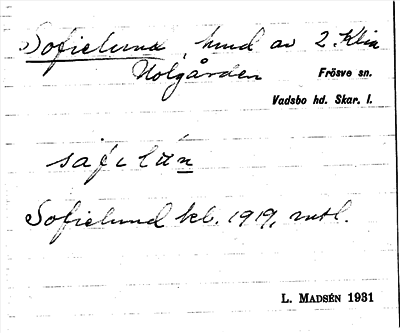 Sofielund, hmd av 2 Klin
Holgården Frösve sn.
Vadsbo hd. Skar. l.
Sofielund kbl. 1919, mtl.
L. MADSÉN 1931